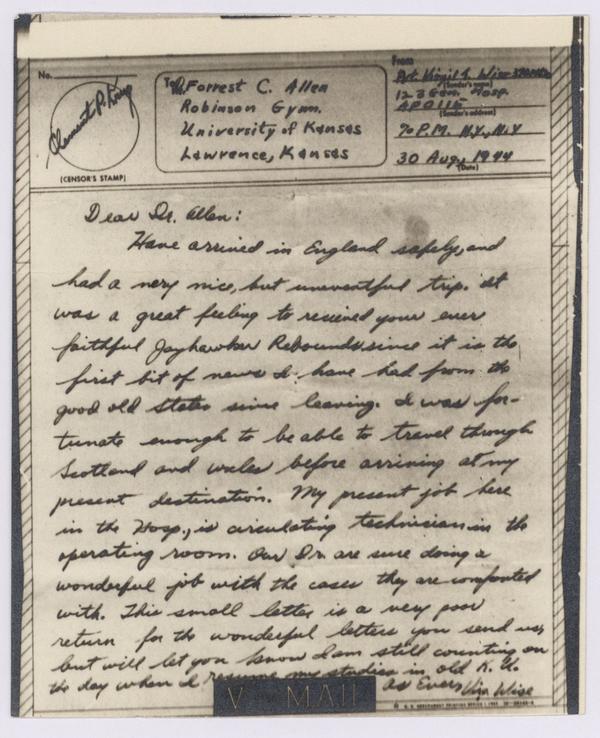 No.
Clement P. King
(CENSOR'S STAMP)
To Dr. Forrest C. Allen
Robinson Gymn.
University of Kansas
Lawrence, Kansas
From
Pvt. Virgil L. Wise
(Sender's name)
123 Gen. Hosp.
APO 115
(Sender's address)
% P.M. N.Y., N.Y
30 Aug., 1944
(Date)
Dear Dr. Allen:
Have arrived in England safely, and
had a very nice, but uneventful trip. It
was a great feeling to recieved your ever
faithful Jayhawker Rebounds since it is the
first bit of news I have had from the
good old States since leaving. I was for-
tunate enough to be able to travel through
Scotland and wales before arriving at my
present destination. My present job here
in the Hosp., is circulating technician in the
operating room. Our Dr. are sure doing a
wonderful job with the cases they are confronted
with. This small letter is a very poor
return for the wonderful letters you send us,
but will let you know I am still counting on
the day when I resume my studies in old K. U.
As Ever, Virg Wise
V - MAIL